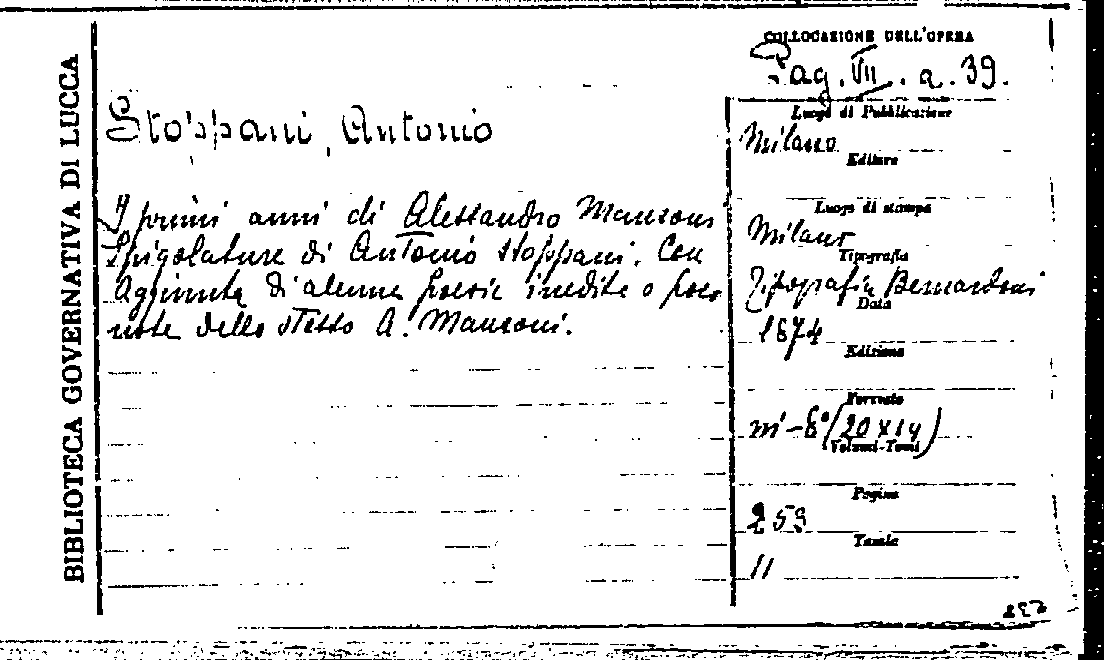 BIBLIOTECA GOVERNATIVA DI LUCCA
Stoppani, Antonio
I primi anni di Alessandro Manzoni
Spigolature di Antonio Stoppani. Con
Aggiunta di alcune poesie inedite o poco
note dello stesso A. Manzoni.
COLLOCAZIONE DELL'OPERA
Pag. VII. a. 39.
Luogo di Pubblicazione
Milano
Editore
Luogo di stampa
Milano
Tipografia
Tipografia Bernardoni
Data
1874
Edizione
Formato
in-8° (20x14)
Volumi-Tomi
Pagine
253
Tavole
11